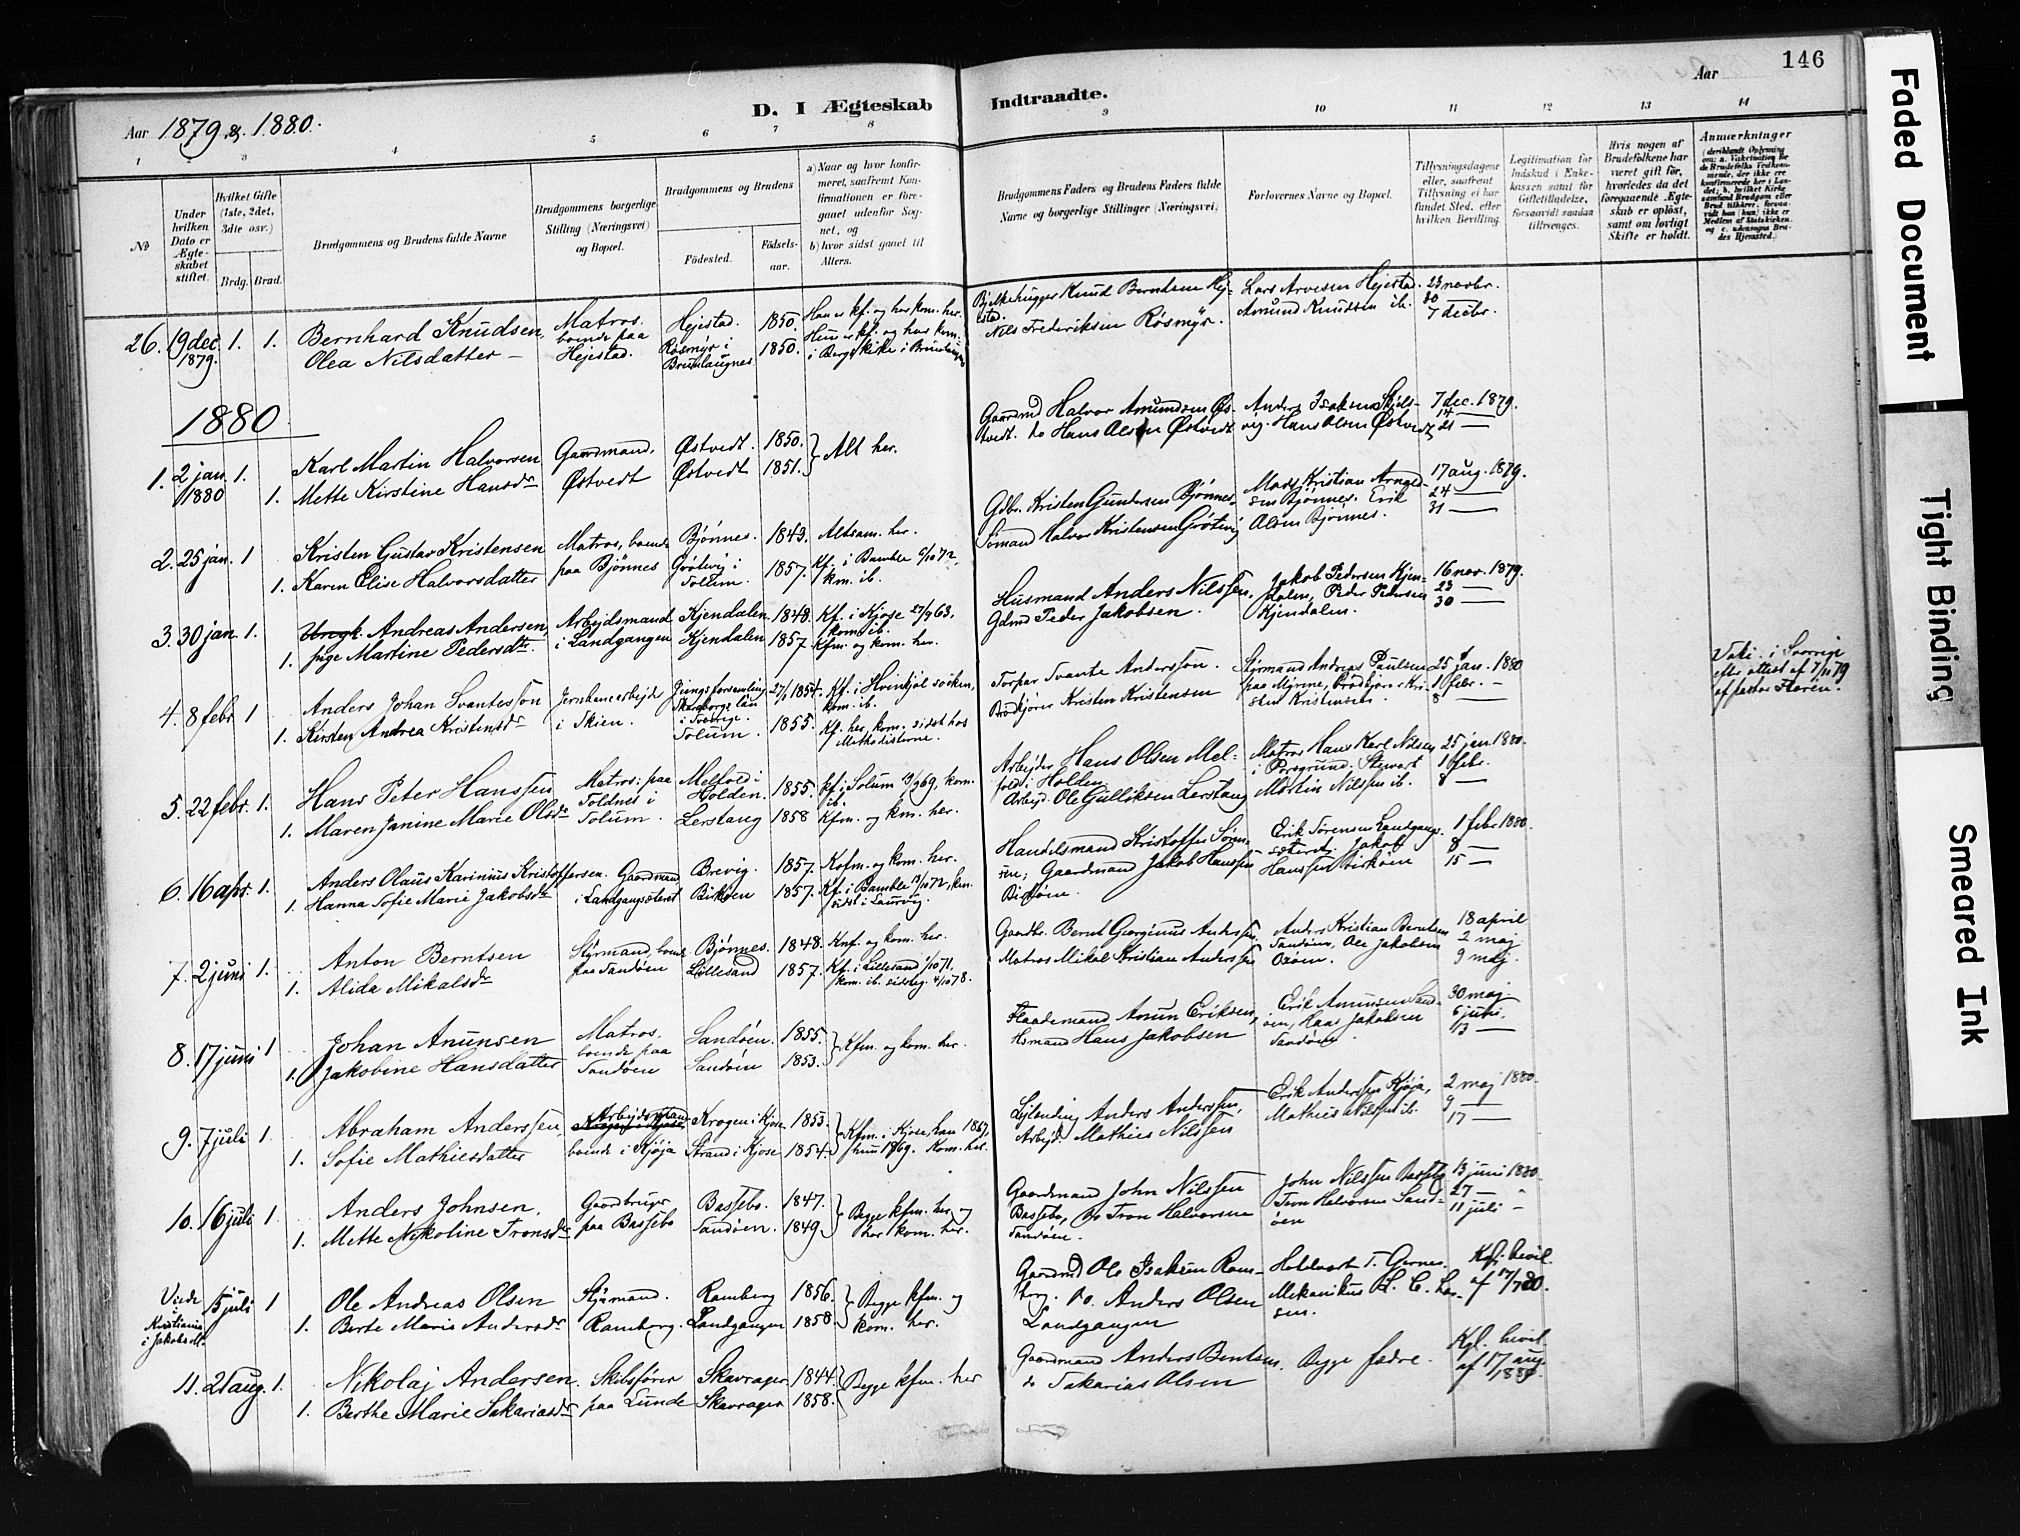 146
Aar 1879 & 1880.
D. I Ægteskab Indtraadte.
Aar
1 3 4 5 6 7 8 9 10 11 12 13 14
No
Under hvilken Dato er Ægteskabet stiftet.
Hvilket Gifte (1ste, 2det, 3die osv.)
Brdg. Brud.
Brudgommens og Brudens fulde Navne
Brudgommens borgerlige Stilling (Næringsvei) og Bopæl.
Brudgommens og Brudens
Fødested.
Fødselsaar.
a) Naar og hvor konfirmeret, saafremt Konfirmationen er foregaaet udenfor Sognet, og
b) hvor sidst gaaet til Alters.
Brudgommens Faders og Brudens Faders fulde Navne og borgerlige Stillinger (Næringsvei)
Forlovernes Navne og Bopæl.
Tillysningsdagene eller, saafremt Tillysning ei har fundet Sted, efter hvilken Bevilling.
Legitimation for Indskud i Enkekassen samt for Giftetilladelse, forsaavidt saadan tiltrænges.
Hvis nogen af Brudefolkene har været gift før, hvorledes da det foregaaende Ægteskab er opløst, samt om lovligt Skifte er holdt.
Anmærkninger
26. 19 dec. 1879. 1. 1. Bernhard Knudsen, Olea Nilsdatter
Matros. boende paa Hejestad.
Hejestad. 1850.
Røsmyr i Brunlaugnes 1850.
Han er kf. og har kom. her.
Hun er kf. og har kom. i Bergs Kirke i
Bjelkehugger Knud Berntsen Hejestad.
Nils Frederiksen Røsmyr.
Lars Arvesen Hejestad.
Amund Knudsen ib.
23 novbr.
30
7 decbr.
1880
1. 2 jan. 1880 1. Karl Martin Halvorsen
1. Mette Kirstine Hansdr
Gaardmand, Østvedt
Østvedt. 1850.
Østvedt 1851.
Alt her.
Gaardmd Halvor Amundsen Østvedt. do Hans Olsen Østvedt
Anders Isaksen Skjelsvig. Hans Olsen Østvedt
7 dec. 1879.
14 —
21 —
2. 25 jan. 1 Kristen Gustav Kristensen
1. Karen Elise Halvorsdatter
Matros, boende paa Bjønnes
Bjønnes. 1843.
Grôtvig i Solum. 1857.
Altsam. her.
Kf. i Bamble 6/10 72, kom. ib.
Gdbr. Kristen Gundersen Bjønnes
Sømand Halvor Kristensen Grôtvig
Mads Kristian sen Bjønnes. Erik Olsen Bjønnes.
17 aug. 1879.
24 —
31 —
3. 30 jan. 1. Andreas Andersen,
1. Inge Martine Pedersdtr.
Arbejdsmand i Landgangen
Kjendalen. 1848.
Kjendalen 1857
Kf. i Kjose 27/9 63, kom. ib.
Kfm. og kom. her.
Husmand Anders Nilssen,
Gdmd Peder Jakobsen.
Jakob Pedersen Kjendalen, Peder Pedersen Kjendalen.
16 nov. 1879.
23 —
30 —
4. 8 febr. 1 Anders Johan Svantesson
1. Kirsten Andrea Kristensdr
i Skien.
Skaraborgs län i Sverige. 1854.
Solum. 1855.
kom. ib.
Kf. her, kom. sidst hos Methodisterne.
Torpar Svante Andersson.
Kristen Kristensen
Styrmand Andreas Paulsen paa Myrene, Kristen Kristensen
25 jan. 1880
1 febr. —
8 —
Vak. i Sverrige efter attest af 7/10 79 af pastor
5. 22 febr. 1. Hans Peter Hanssen
1. Maren Janine Marie Olsdr
Matros; paa Toldnes i Solum.
Melfold i Holden. 1855.
Lerstang 1858
kf. i Solum 19/9 69. kom. ib.
Kfm. og km. her.
Arbejder Hans Olsen Melfold i Holden
Arbejd. Ole Gulliksen Lerstang
Matros Hans Karl Nilsen i Porsgrund; Stewart Martin Nilssen ib.
25 jan 1880.
1 febr.
8 —
6. 16 apr. 1. Anders Olaus Karinius Kristoffersen.
1. Hanna Sofie Marie Jakobsdr
Gaardmand i Landgangsæteret
Brevig. 1857.
Birkøen 1857.
Kofm. og kom. her.
Kf. i Bamble 13/10 72, km. sidst i Laurvig.
Handelsmand Kristoffer Sørensen; Gaardmand Jakob Hanssen
Erik Sørensen Landgangsæteret; Jakob Hanssen Birkøen
1 febr 1880.
8 —
15 —
7. 2 juni 1. Anton Berntsen
1. Alida Mikalsdr
Styrmand, boende paa Sandøen
Bjønnes. 1848.
Lillesand 1857.
Knf. og kom. her.
Kf. i Lillesand 1/10 71. kom. ib. sidst 4/10 78.
Gaardbr. Bernt Georginus Anderssen.
Matros Mikal Kristian Anderssen
Anders Kristian Berntsen Sandøen, Ole Jakobsen
18 april
2 maj
9 maj.
8. 17 juni 1 Johan Anunsen
1. Jakobine Hansdatter
Matros. boende paa Sandøen
Sandøen. 1855.
Sandøen 1853.
Kfm. og kom. her.
Anun Eriksen,
Hsmand Hans Jakobsen
Erik Anunsen Sandøen, Hans Jakobsen Sandøen.
30 maj.
6 juni.
13 —
9. 7 juli 1 Abraham Anderssen,
1. Sofie Mathiesdatter
boende i Kjøja
Krogen i Kjose 1853.
Strand i Kjose 1854.
Kfm. i Kjose, han 1867, hun 1869. Kom. her.
Lejlænding Anders Anderssen,
Arbejd. Mathies Nilssen
Erik Anderssen Kjøja,
Mathies Nilssen ib.
2 maj 1880.
9 —
17 —
10. 16 juli 1 Anders Johnsen.
1. Mette Nikoline Tronsdr
Gaardbruger paa Bassebo
Bassebo. 1847.
Sandøen. 1849
Begge kfm. her og har kom. her.
Gaardmand John Nilssen Bassebo, do Tron Halvorsen Sandøen.
John Nilssen Bassebo
Tron Halvorsen Sandøen
13 juni 1880.
27 —
11 juli —
Viede i Kristiania i Jakobsk.
15 juli 1 Ole Andreas Olsen
1. Berte Marie Andersdr
Styrmand. Ramberg.
Ramberg 1856.
Landgangen 1858.
Begge kfm. og kom. her.
Gaardmd Ole Isaksen Ramberg. do. Anders Olsen Landgangen
Mekanikus
Kgl. bevil. af 17/7 80.
11. 21 aug. 1. Nikolaj Andersen.
1. Berthe Marie Sakariasdr
Skibsfører paa Lunde
Skavrager 1844.
Skavrager 1858.
Begge kfm. her
Gaardmand Anders Bentsen.
do Sakarias Olsen
Begge fædre.
Kgl. bevil. af 17 aug. 1880.
Faded Document
Tight Binding
Smeared Ink